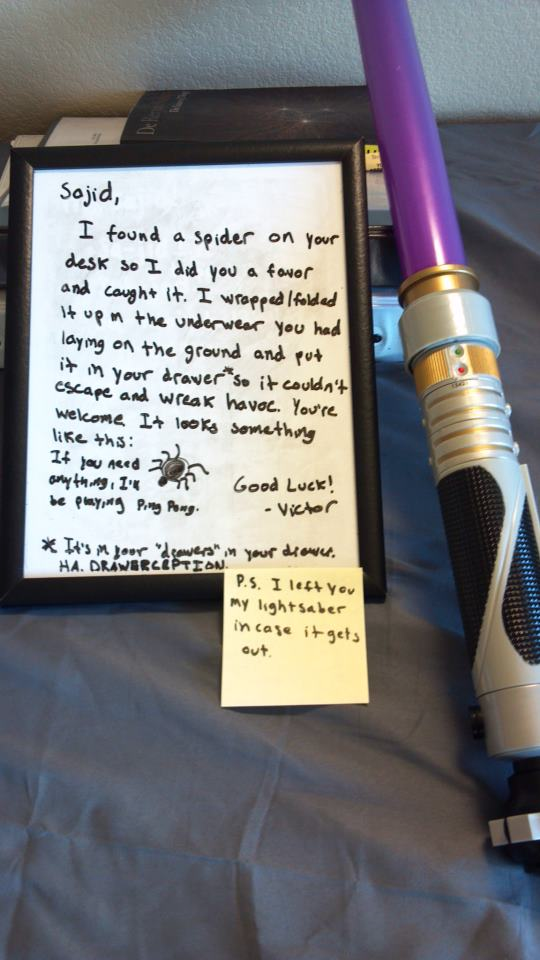 Sajid,
I found a spider on your
desk so I did you a favor
and caught it. I wrapped/folded
it up in the underwear you had
laying on the ground and put
it in your drawer* so it couldn't
escape and wreak havoc. You're
welcome. It looks something
like this:
If you need
anything, I'll
be playing Ping Pong.
Good Luck!
- Victor
* It's in your "drawers" in your drawer.
HA. DRAWERCEPTION.
P.S. I left you
my lightsaber
in case it gets
out.